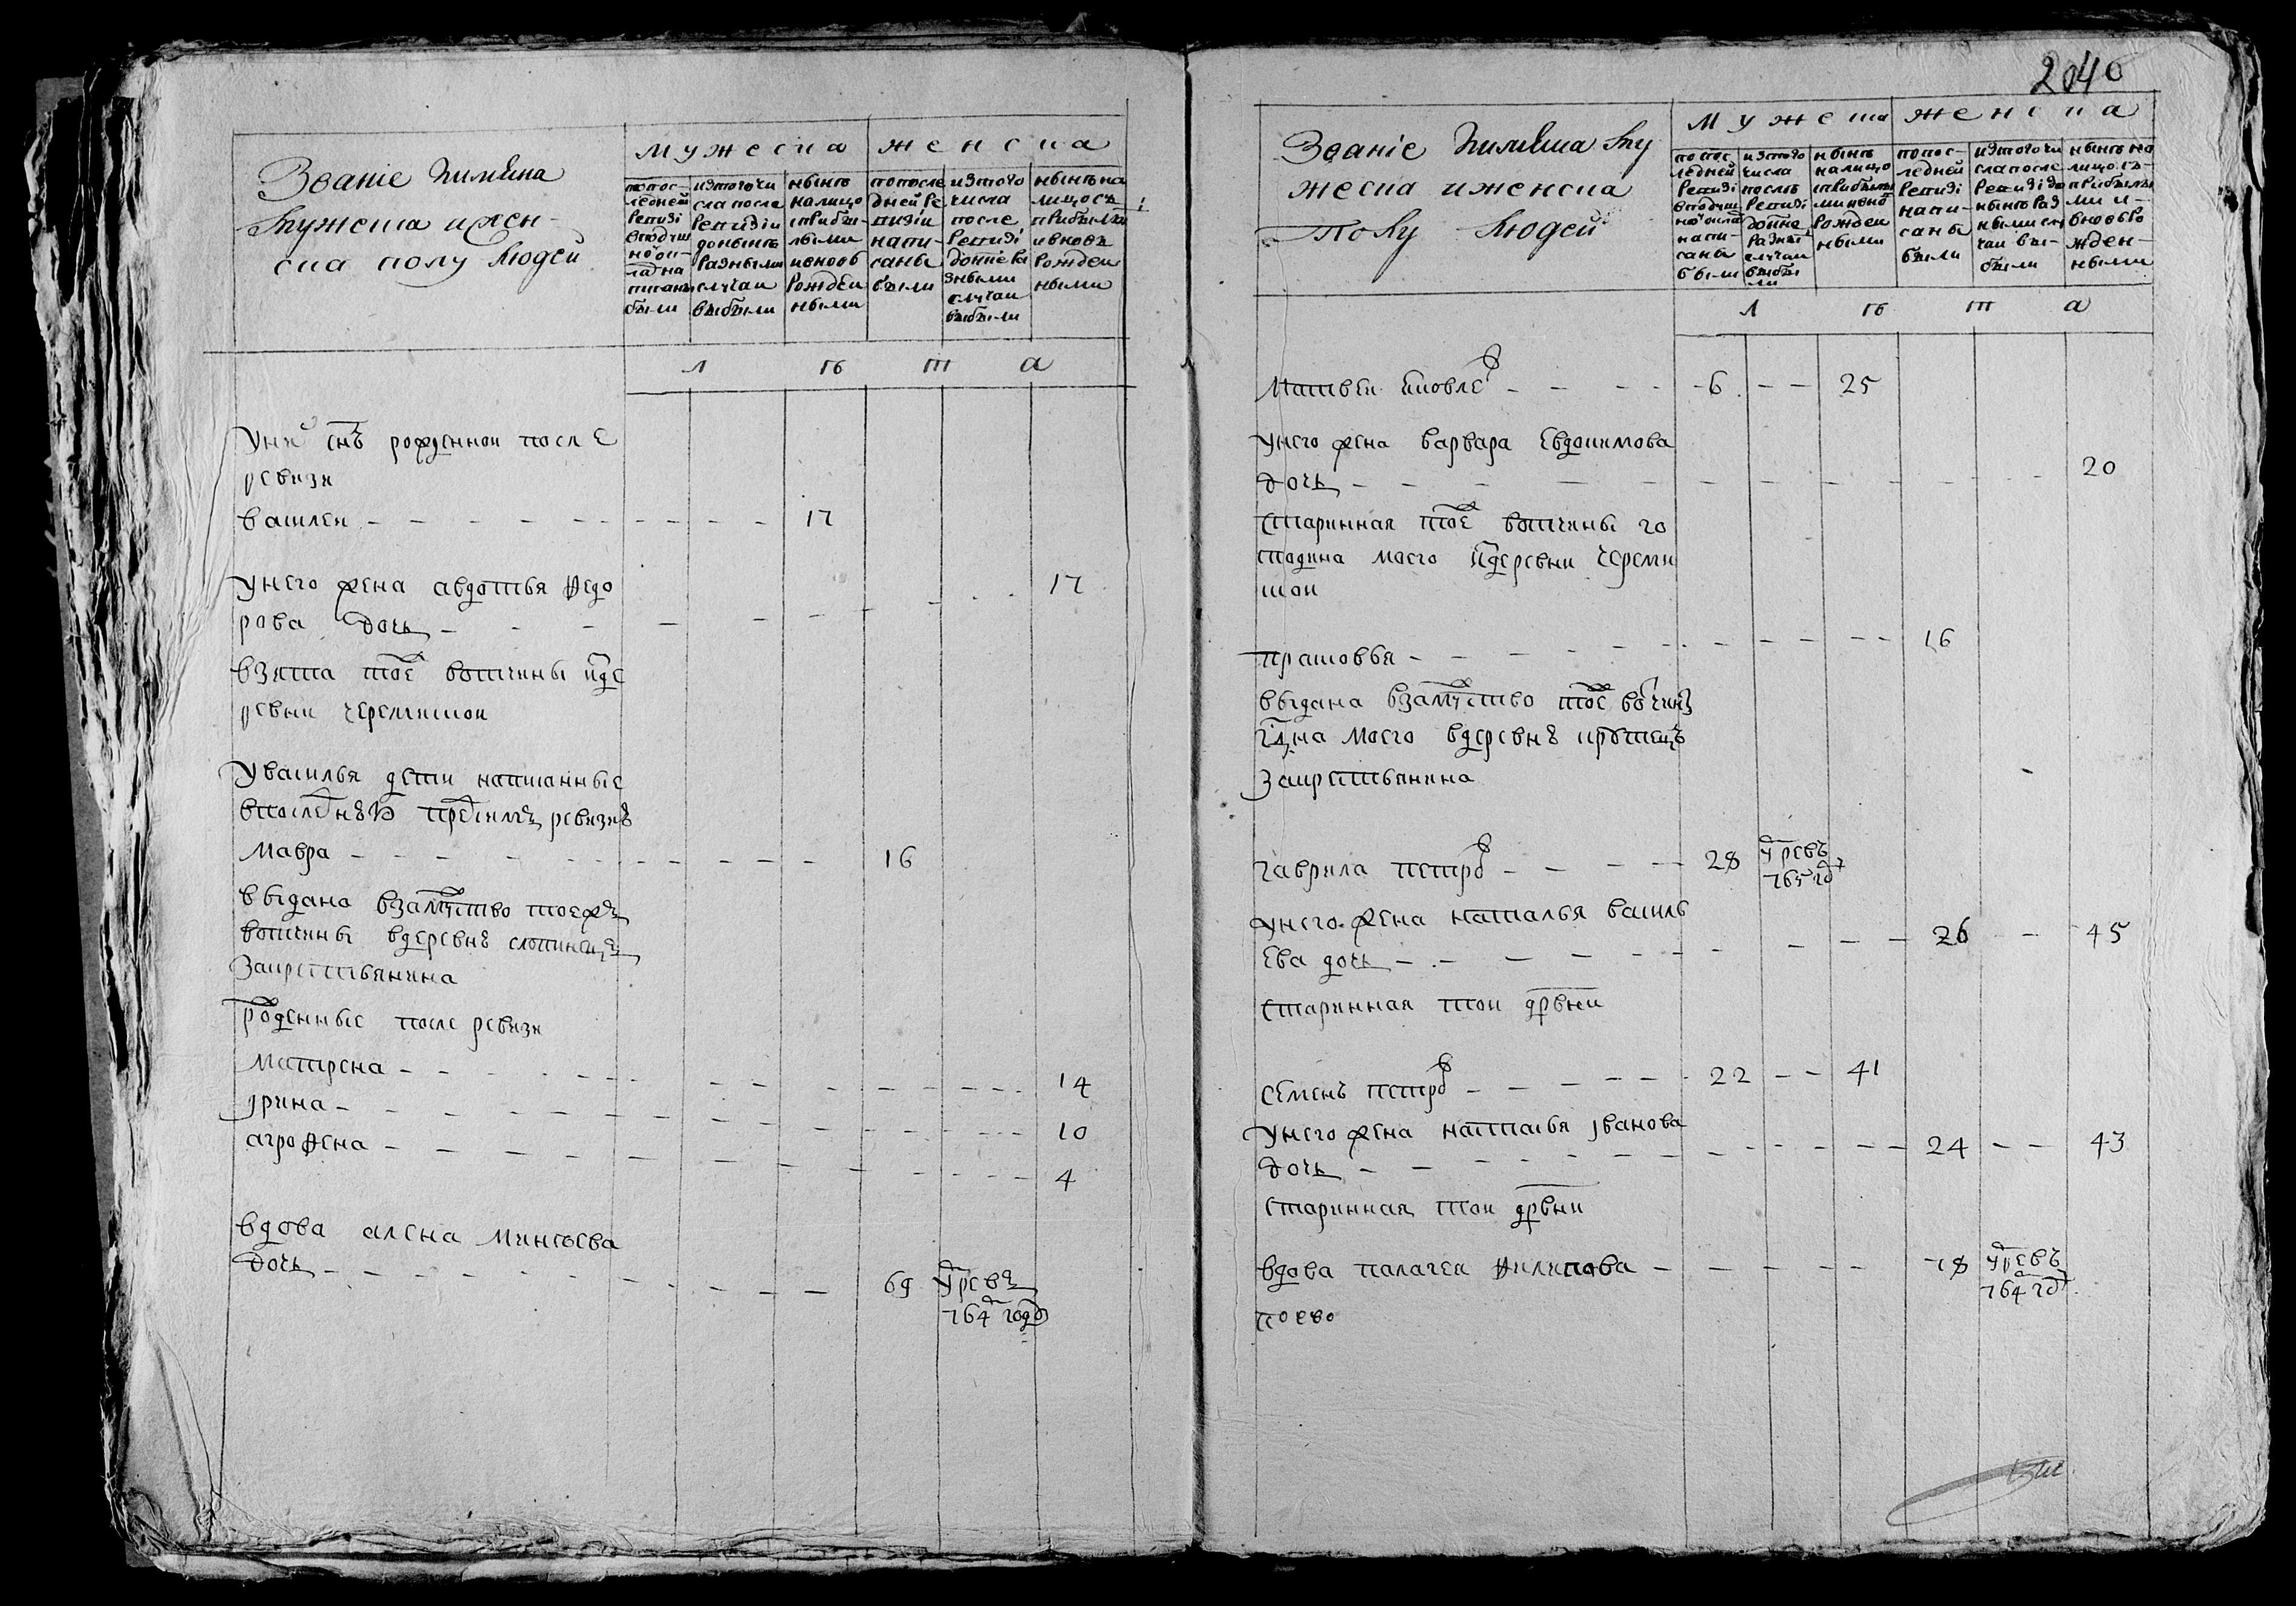 Звание и имяна
мужеска и жен-
ска полу людей
мужеска
женска
по пос-
ледней
ревизi
в подуш
ной ок-
лад на
писаны
были
из того чи
сла после
ревизiи
до ныне
разными
случаи
выбыли
ныне
налицо
с прибы-
лыми
и вновь
рожден
ными
по после
дней ре
визiи
напи-
саны
были
из того
числа
после
ревизi
до ныне ра
зными
случаи
выбыли
ныне на
лицо съ
прибылы
и вновь
рожден
ными
л ѣ т а
у них снъ рожденной после
ревизи
василеи 17
у него жена авдотья федо
рова дочь 17
взята тое вотчины из де
ревни черемишои
у василья дети написанные
в последнеи пред сим ревизиѣ
мавра 16
выдана в замужство тое ж
вотчины в деревне
за крестьянина
рожденные после ревизи
матрена 14
ирина 10
агрофена 4
вдова алена минѣева
дочь 69 умре въ
764 годѹ
2040
Звание и имяна му
жеска и женска
полу людей
мужеска
женска
по пос
ледней
ревизi
в подуш
ной оклад
напи-
саны
были
из того
числа
после
ревизi
до ныне
разны
случаи
выбы
ли
ныне
налицо
с прибылы
ми и вно
рожден
ными
по пос-
ледней
ревизi
напи-
саны
были
из того чи
сла после
ревизi до
ныне раз
ными слу
чаи вы-
были
ныне на
лицо съ-
прибылы
ми и-
вновь ро
жден-
ными
л ѣ т а
матвеи яковлев 6 25
у него жена варвара евдокимова
дочь 20
старинная тое вотчины го
сподина моего из деревни череми
шои
прасковья 16
выдана в замужство тое вотчины
гдна моего в деревнѣ
за крестьянина
гаврила петров 28 умре въ
765 год
у него жена наталья василь
ева дочь 26 45
старинная тои дрвни
семенъ петров 22 41
у него жена наталья иванова
дочь 24 43
старинная тои дрвни
вдова палагея филипова 78 умре въ
764 год
поево